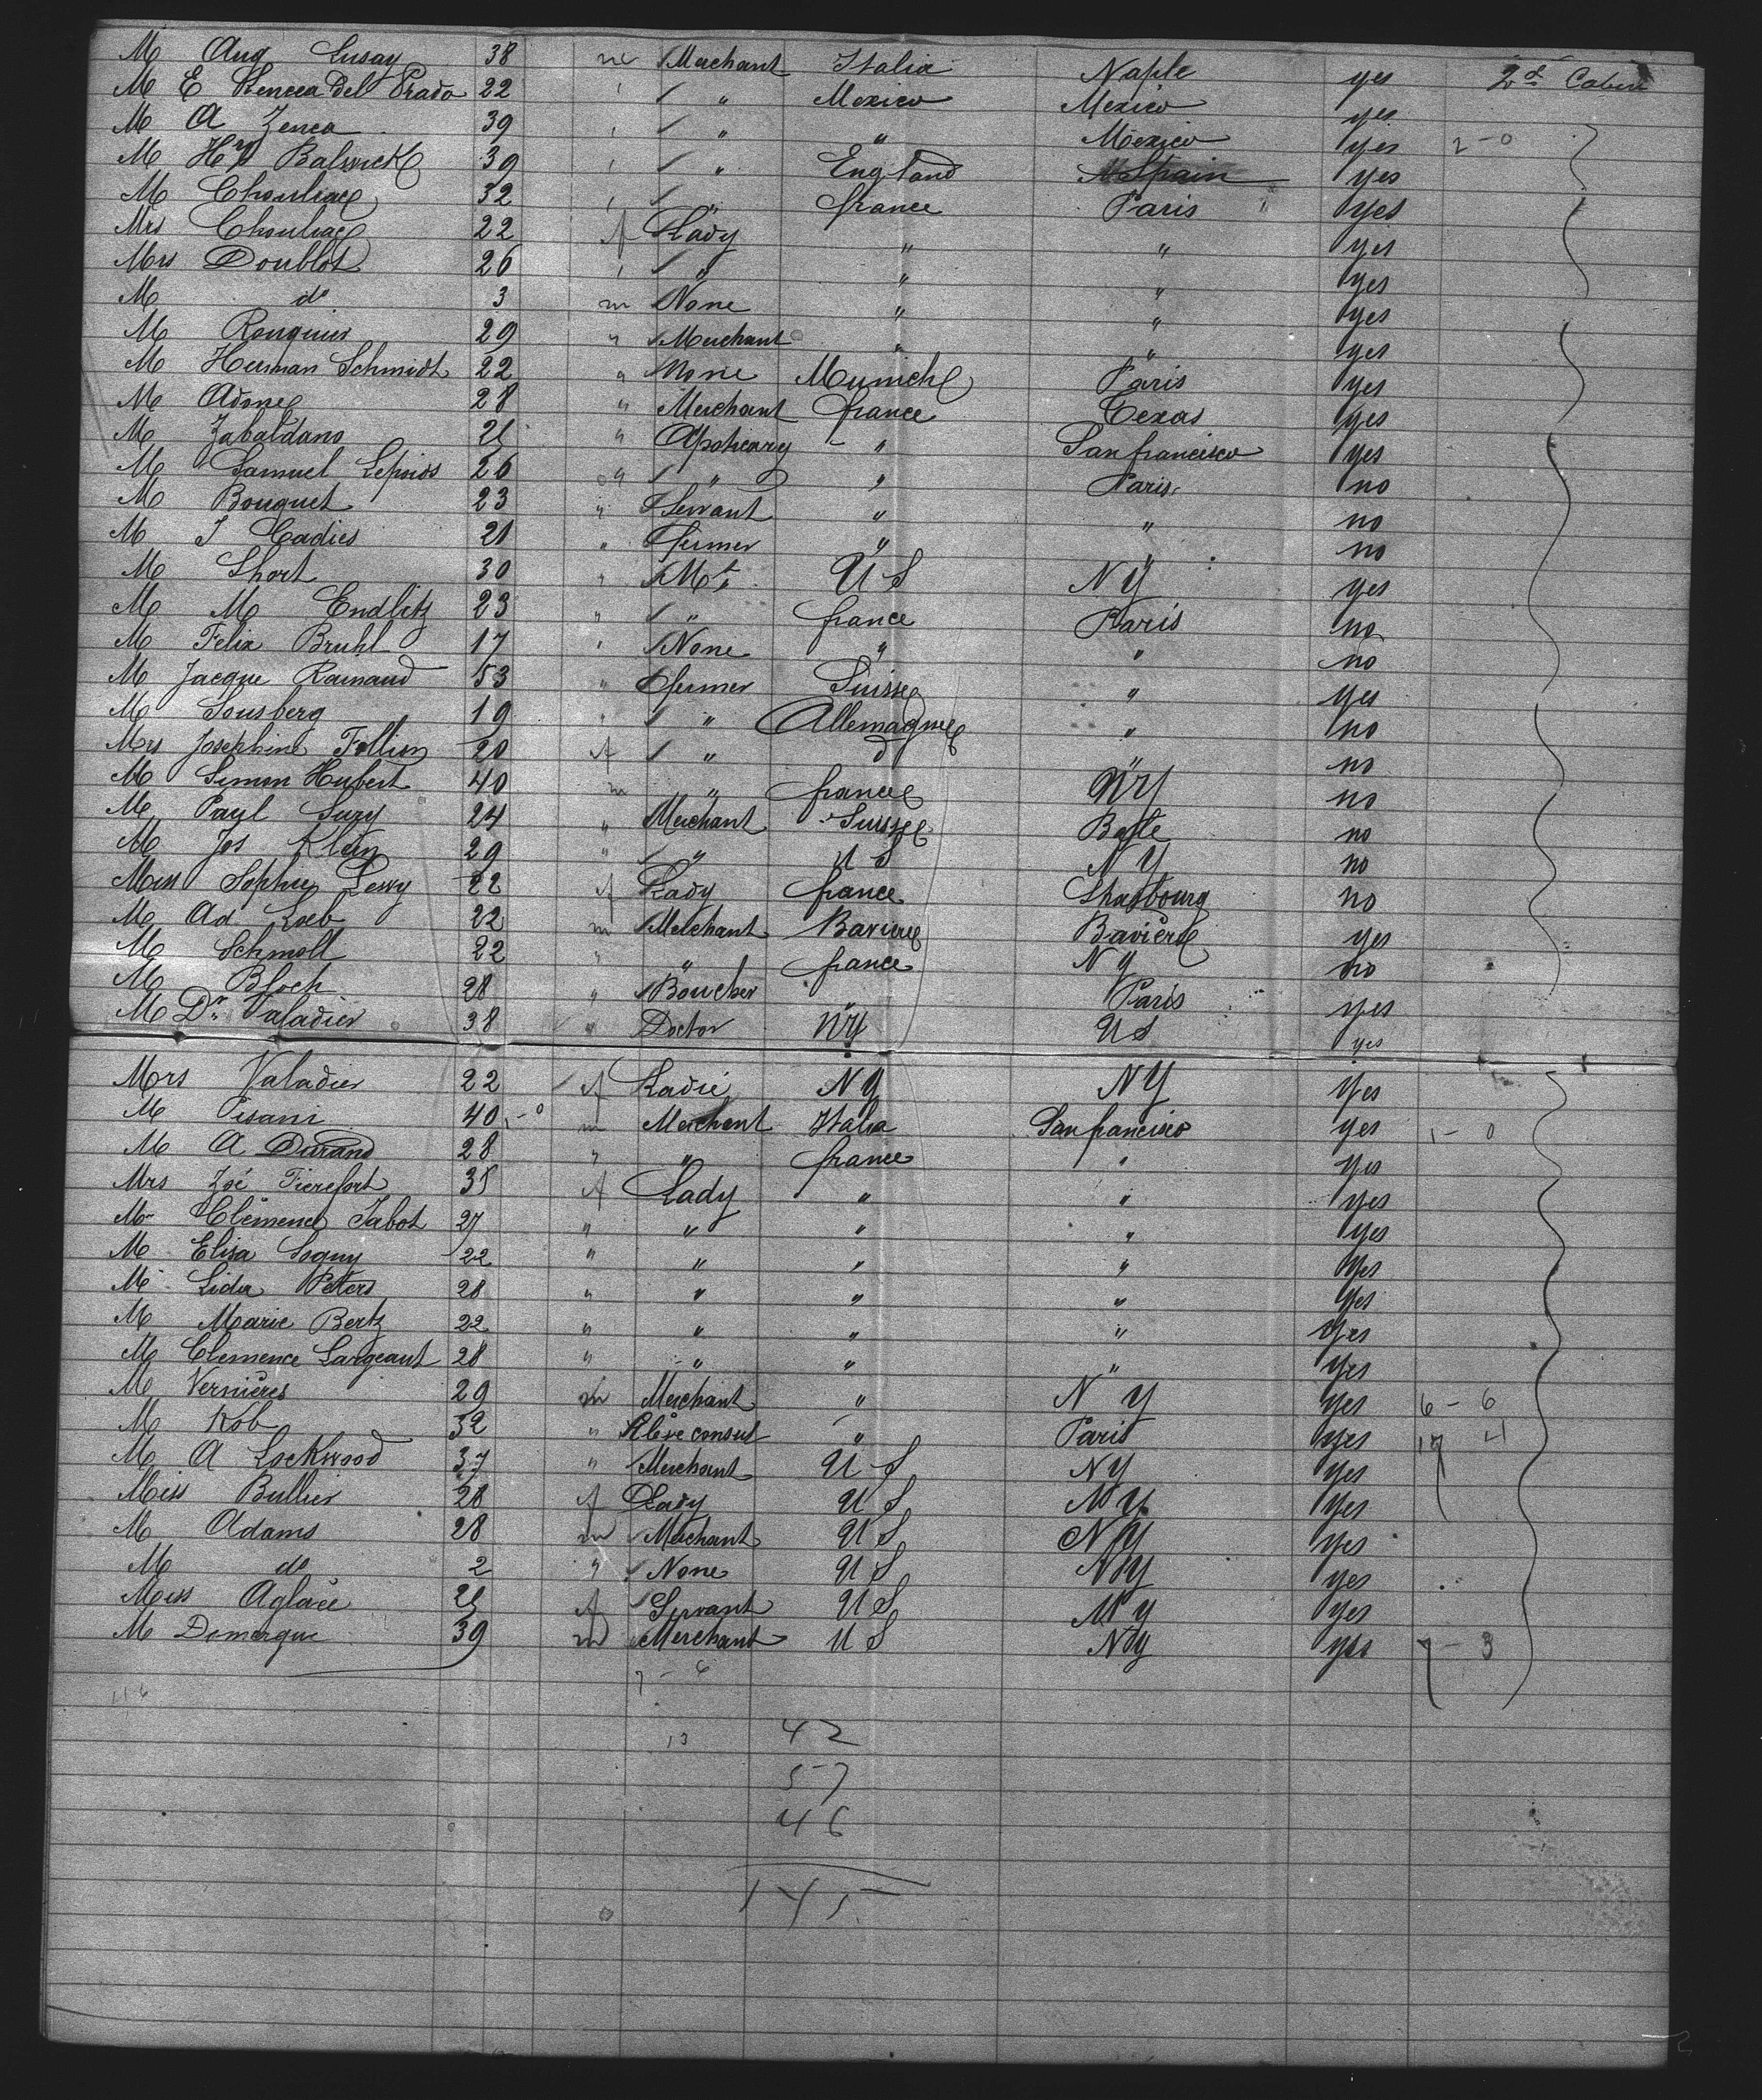 M Aug Lusay 38 m Merchant Italia Naple yes 2d Cabin
M E Del Prado 22 " Mexico Mexico yes
M A Zenea 39 " " Mexico yes 2-0
M Hry Balwick 39 " England Spain yes
M Chouliac 32 " france Paris yes
Mrs Chouliac 22 f Lady " " yes
Mrs Doublot 26 " " " yes
M do 3 m None " " yes
M Rouquier 29 " Merchant " " yes
M Herman Schmidt 22 " None Munich Paris yes
M Adone 28 " Merchant france Texas yes
M Zabaldano 21 " Apoticary " San francisco yes
M Samuel Lepoids 26 " " " Paris no
M Bouquet 23 " Servant " " no
M J Cadies 21 " fermer " " no
M Short 30 " Mt U S N Y yes
M M Endlitz 23 " " france Paris no
M Felix Bruhl 17 " None " " no
M Jacque Rainaud 53 " fermer Suisse " yes
M Sousberg 19 " " Allemagne " no
Mrs Josephine 20 f " d " no
M Simon Hubert 40 m " france NY no
M Paul Sury 24 " Merchant Suisse Basle no
M Jos Klein 29 " " U S N Y no
Miss Sophie Levvy 22 f Lady france Strasbourg no
M Ad Loeb 22 m Merchant Baviere Bavière yes
M Schmoll 22 " " france N Y no
M Bloch 28 " Boucher " Paris yes
M Dr Valadier 38 " Doctor NY U S yes
Mrs Valadier 22 f Ladie N Y N Y yes
M Pisani 40 -0 m Merchant Italia San francisco yes 1-0
M A Durand 28 " " france " yes
Mrs Zoé Tierefort 35 f Lady " " yes
M Clémence Jabot 27 " " " " yes
M Elisa Loguy 22 " " " " yes
M Lidia Peters 28 " " " " yes
M Marie Bertz 22 " " " " yes
M Clemence Largeant 28 " " " " yes
M Vernières 29 m Merchant " N Y yes 6-6
M Kob 32 " Elève consul " Paris yes 17 4
M A Lockwood 37 " Merchant U S N Y yes
Miss Bullier 28 f Lady U S N Y yes
M Adams 28 m Merchant U S N Y yes
M do 2 " None U S N Y yes
Miss Aglaée 21 f Servant U S N Y yes
M Demarque 39 m Merchant U S N Y yes 7-3
7-6
116
13 42
57
46
145